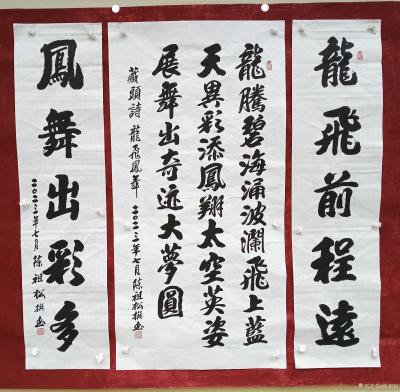 龍飛前程遠
龍騰碧海涌波瀾飛上藍
天異彩添鳳翔太空英姿
展舞出奇迹大夢圓
藏頭詩 龍飛鳳舞 二〇二三年七月陳祖松撰書
鳳舞出彩多
二〇二三年七月 陳祖松撰書